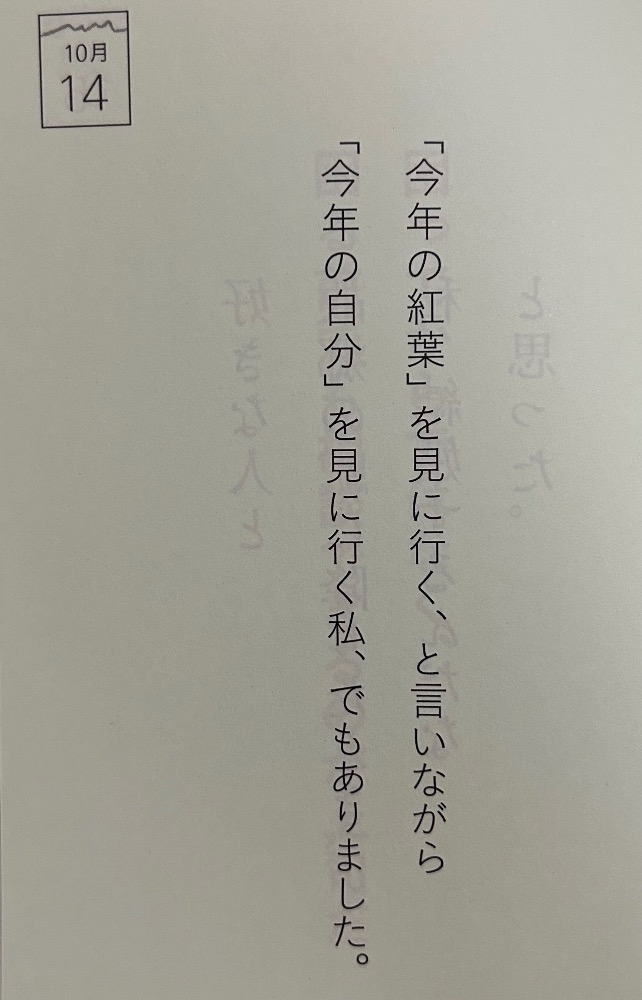 10月
14
「今年の紅葉」を見に行く、と言いながら
「今年の自分」を見に行く私、でもありました。